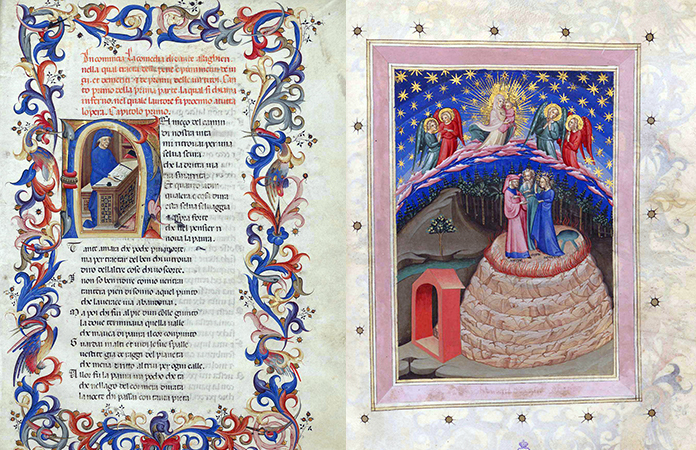 Incomincia la comedia di dante allaghieri
nella qual tracta delle pene e punimenti de vi
tii et de meriti et premii delle virtu. Can
to primo della prima parte la qual si chiama
inferno, nel quale lautore fa proemio a tutta
lopera. Capitolo primo.
NEl meço del camin
di nostra vita
mi ritrovai per una
selva scura
che la diritta via
era smarrita
Et quanto a dir
qualera e cosa dura
esta selva selvaggia
et aspra e forte
che nel pensier ri
nova la paura.
Tante amara che poche piu morte
ma per trattar del ben chi vi trovai
diro dellaltre cose chi vo scorte.
I non so ben ridire comio ventrai
tantera pien di sonno a quel punto
che la verace via abandonai.
Ma poi chi fui al pie dun colle giunto
la dove terminava quella valle
che mavea di paura il cor conpunto
Guardai in alto et vidi le sue spalle
vestite gia de raggi del pianeta
che mena dritto altrui per ogni calle.
Allor fu la paura un poco cheta
che nellago del cor mera durata
la nocte chi passai con tanta pieta